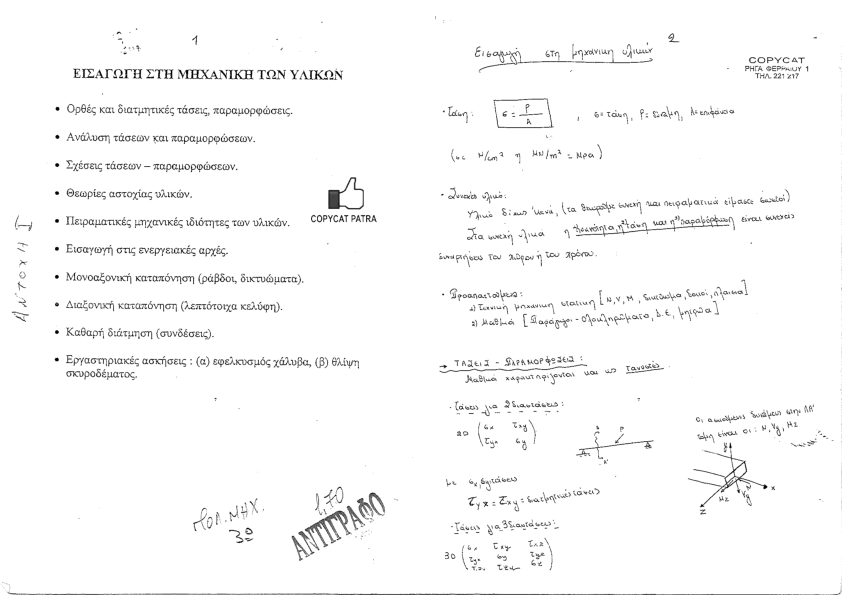 1
ΕΙΣΑΓΩΓΗ ΣΤΗ ΜΗΧΑΝΙΚΗ ΤΩΝ ΥΛΙΚΩΝ
• Ορθές και διατμητικές τάσεις, παραμορφώσεις.
• Ανάλυση τάσεων και παραμορφώσεων.
• Σχέσεις τάσεων – παραμορφώσεων.
• Θεωρίες αστοχίας υλικών.
• Πειραματικές μηχανικές ιδιότητες των υλικών.
• Εισαγωγή στις ενεργειακές αρχές.
• Μονοαξονική καταπόνηση (ράβδοι, δικτυώματα).
• Διαξονική καταπόνηση (λεπτότοιχα κελύφη).
• Καθαρή διάτμηση (συνδέσεις).
• Εργαστηριακές ασκήσεις : (α) εφελκυσμός χάλυβα, (β) θλίψη
σκυροδέματος.
COPYCAT PATRA
ΑΝΤΟΧΗ Ι
Πολ. ΜΗΧ.
3º
1,70
ΑΝΤΙΓΡΑΦΟ
2
Εισαγωγή στη μηχανικη υλικών
COPYCAT
ΡΗΓΑ ΦΕΡΡΑΙΟΥ 1
ΤΗΛ. 221 217
• Τάση: σ = P / A , σ = τάση, P = δύναμη, A = επιφάνεια
(σε N/cm² ή MN/m² = MPa)
• Συνεχές υλικό:
Υλικό δίχως κενά, (τα θεωρούμε συνεχή και πειραματικά είμαστε σωστοί)
Στα συνεχή υλικα η πυκνότητα, η τάση και η παραμόρφωση είναι συνεχείς
συναρτήσεις του χώρου ή του χρόνου.
• Προαπαιτούμενα:
1) Τεχνική μηχανικη στατικη [N, V, M, δικτύωμα, δοκοί, πλαίσια]
2) Μαθημ/κά [Παράγωγοι - Ολοκληρώματα, δ.ε, μητρώα]
→ ΤΑΣΕΙΣ - ΠΑΡΑΜΟΡΦΩΣΕΙΣ :
Μαθ/κά χαρακτηρίζονται και ως τανυστές
• Τάσεις για 2 διαστάσεις:
2D (σx τxy
τyx σy)
P
A
A'
Οι ασκούμενες δυνάμεις στην ΑΑ'
τομή είναι οι : N, Vy, Mz
y
N
x
Mz
Vy
z
με σx, σy τάσεις
τyx = τxy = διατμητικές τάσεις
• Τάσεις για 3 διαστάσεις:
3D (σx τxy τxz
τyx σy τyz
τzx τzy σz)